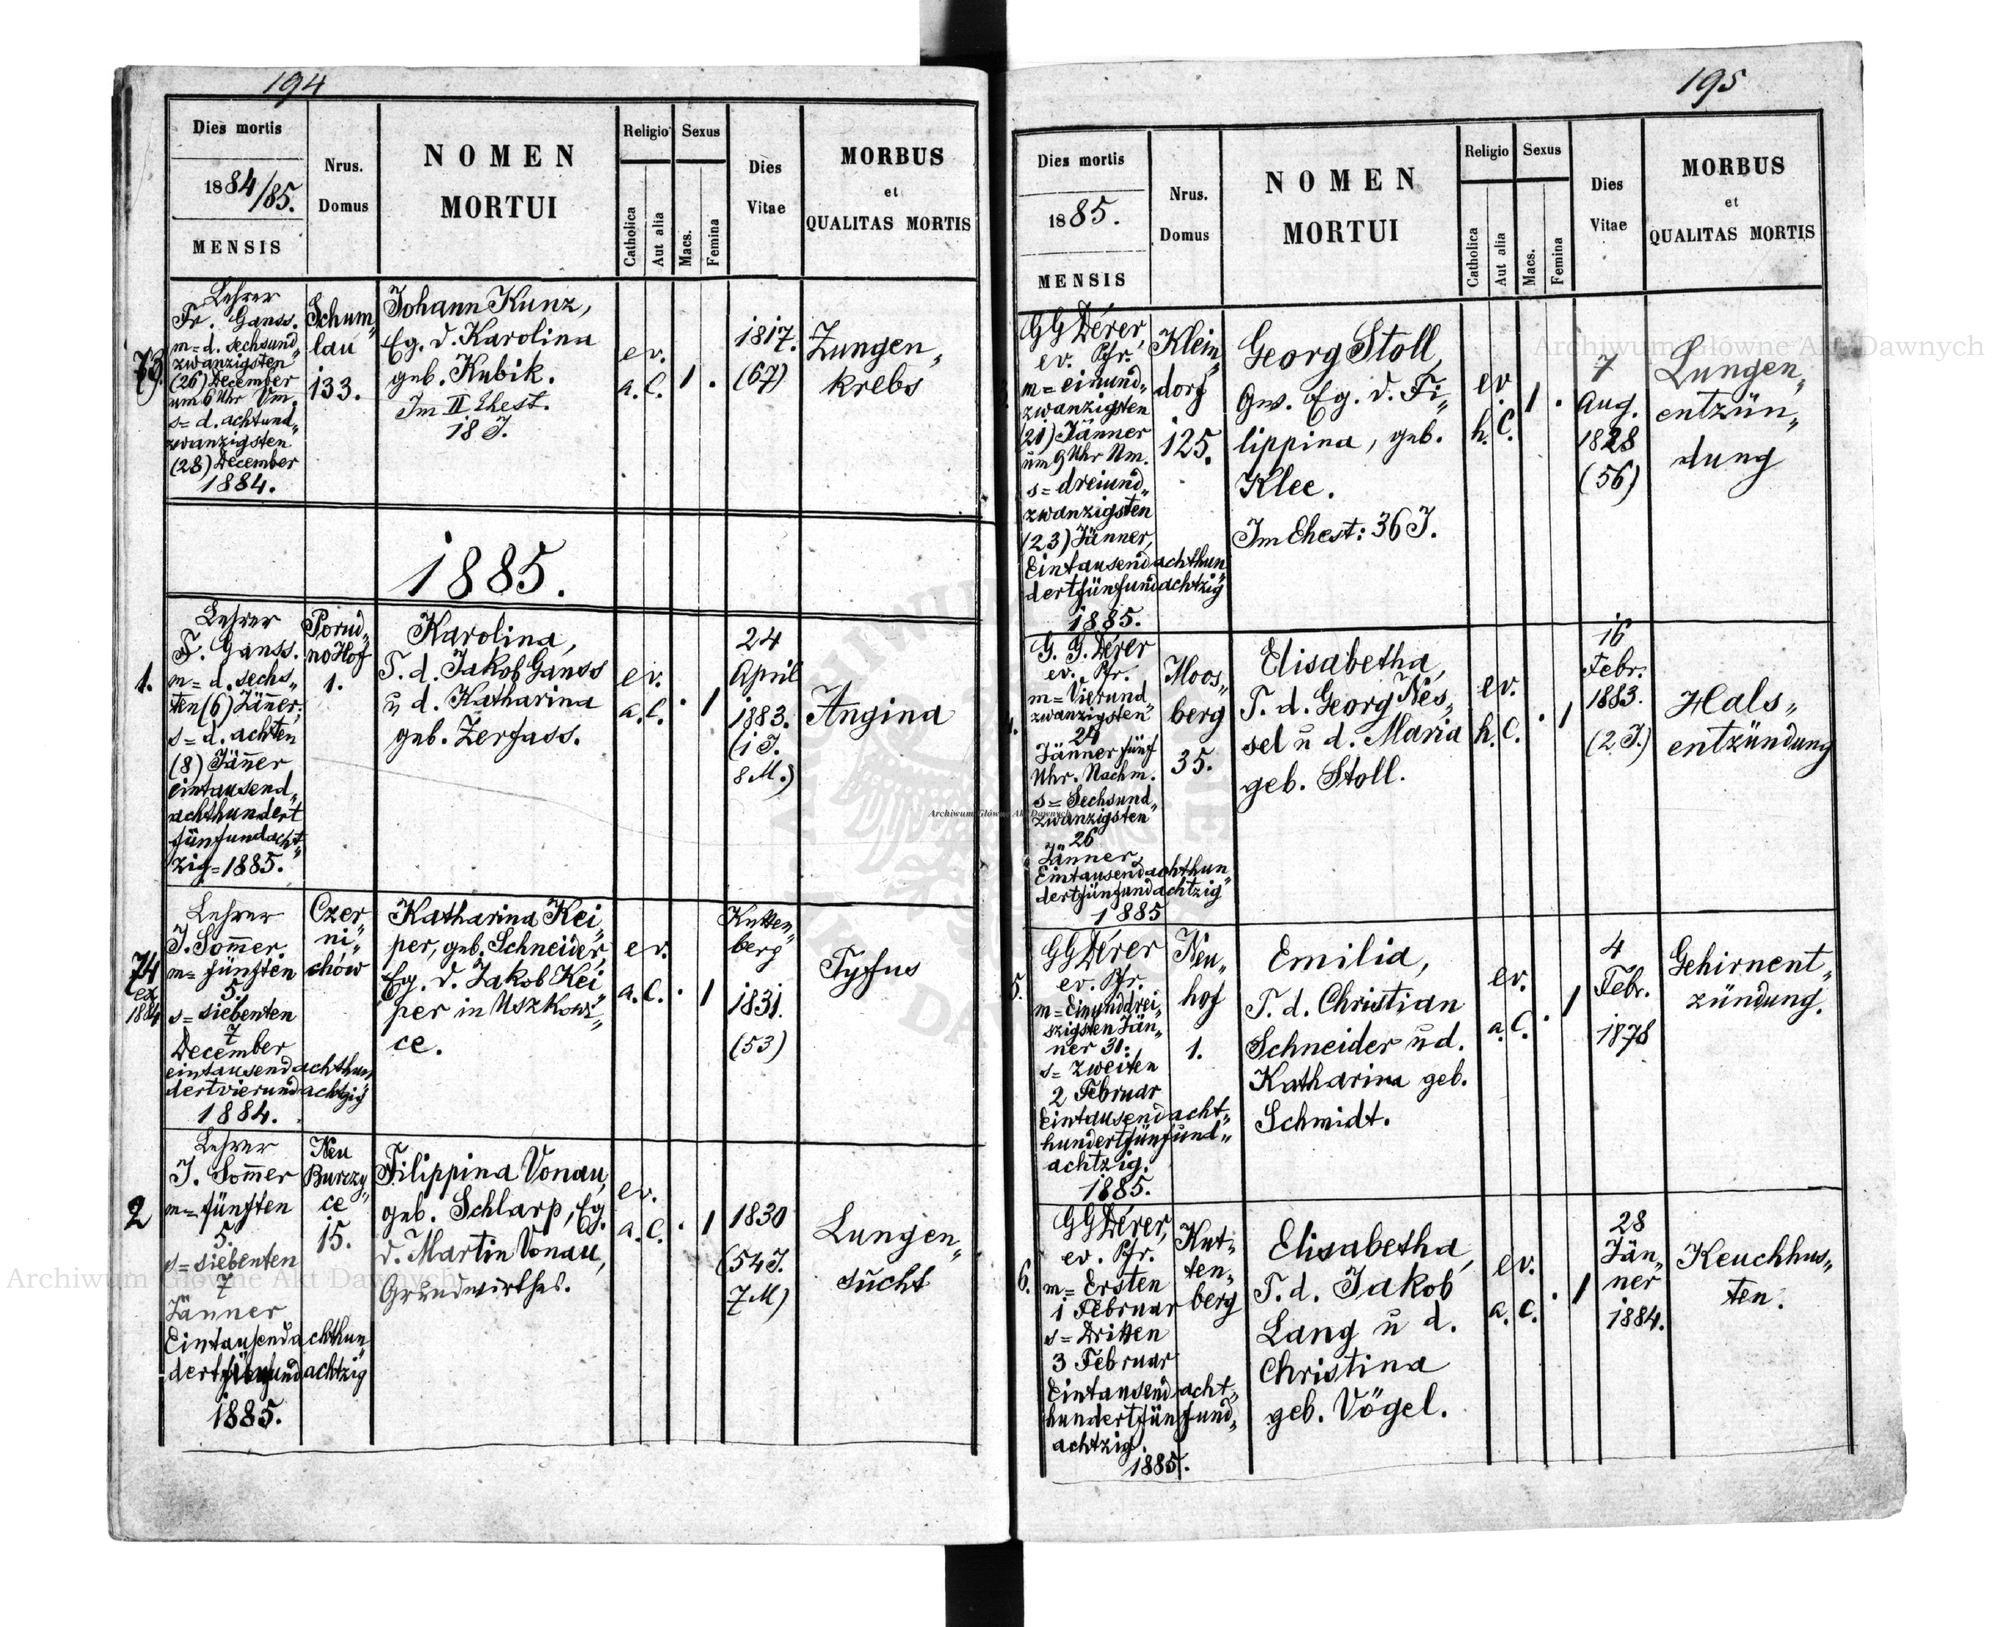 194
Dies mortis
1884/85.
MENSIS
Nrus.
Domus
NOMEN
MORTUI
Religio
Catholica
Aut alia
Sexus
Macs.
Femina
Dies
Vitae
MORBUS
et
QUALITAS MORTIS
73.
Lehrer
Fr. Ganss.
m= d. sechsund„
zwanzigsten
(26) December
um 6 Uhr Vm.
s= d. achtund„
zwanzigsten
(28) December
1884.
Schum„
lau
133.
Johann Kunz,
Eg. d. Karolina
geb. Kubik.
Im II Ehest.
18 J.
ev.
a. C.
1 .
1817.
(67)
Zungen„
krebs
1885.
1.
Lehrer
F. Ganss.
m= d. sechs„
ten (6) Jänner,
s= d. achten
(8) Jänner
eintausend„
achthundert
fünfundacht„
zig= 1885.
Porud„
no Hof
1.
Karolina,
T. d. Jakob Ganss
u d. Katharina
geb. Zerfass.
ev.
a. C.
. 1
24
April
1883.
(1 J.
8 M.)
Angina
74
ex
1884
Lehrer
J. Sommer
m= fünften
5.
s= siebenten
7
December
eintausendachthun„
dertvierundachtzig
1884.
Czer„
ni„
chów
Katharina Kei„
per, geb. Schneider,
Eg. d. Jakob Kei„
per in Uszkowi„
ce.
ev.
a. C.
. 1
Kutten„
berg
1831.
(53)
Tyfus
2
Lehrer
J. Sommer
m= fünften
5.
s= siebenten
7
Jänner
Eintausendachthun„
dertfünfundachtzig
1885.
Neu
Burczy„
ce
15.
Filippina Vonau,
geb. Schlarp, Eg.
d. Martin Vonau,
Grundwirthes.
ev.
a. C.
. 1
1830
(54 J.
7 M)
Lungen„
sucht
195
Dies mortis
1885.
MENSIS
Nrus.
Domus
NOMEN
MORTUI
Religio
Catholica
Aut alia
Sexus
Macs.
Femina
Dies
Vitae
MORBUS
et
QUALITAS MORTIS
GG Dérer,
ev. Pfr.
m= einund„
zwanzigsten
(21) Jänner
um 9 Uhr Nm.
s= dreiund„
zwanzigsten
(23) Jänner,
Eintausendachthun„
dertfünfundachtzig
1885.
Klein„
dorf
125.
Georg Stoll,
Gw. Eg. d. Fi„
lippina, geb.
Klee.
Im Ehest: 36 J.
ev.
h. C.
1 .
7
Aug.
1828
(56)
Lungen„
entzün„
dung
4.
G. G. Dérer
ev. Pfr.
m= Vierund„
zwanzigsten
24
Jänner fünf
Uhr. Nachm.
s= Sechsund„
zwanzigsten
26
Jänner,
Eintausendachthun„
dertfünfundachtzig
1885
Moos„
berg
35.
Elisabetha,
T. d. Georg Nes„
sel u d. Maria
geb. Stoll.
ev.
h. C.
. 1
16
Febr.
1883.
(2 J.)
Hals„
entzündung
5.
GG Dérer
ev. Pfr.
m= Einunddrei„
szigsten Jän„
ner 31.
s= Zweiten
2 Februar
Eintausendacht„
hundertfünfund„
achtzig.
1885.
Neu„
hof
1.
Emilia,
T. d. Christian
Schneider u d.
Katharina geb.
Schmidt.
ev.
a. C.
. 1
4
Febr.
1878
Gehirnent„
zündung.
6.
GG Dérer,
ev. Pfr.
m= Ersten
1 Februar
s= Dritten
3 Februar
Eintausendacht„
hundertfünfund„
achtzig.
1885.
Kut„
ten„
berg
Elisabetha,
T. d. Jakob
Lang u d.
Christina
geb. Vögel.
ev.
a. C.
. 1
28
Jän„
ner
1884.
Keuchhus„
ten.
Archiwum Główne Akt Dawnych
Archiwum Główne Akt Dawnych
Archiwum Główne Akt Dawnych